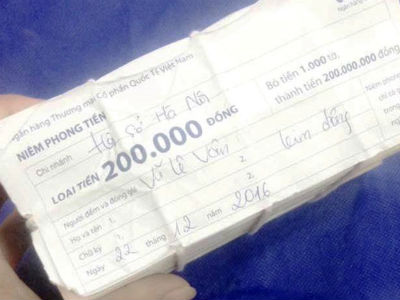 Ngân hàng Thương mại Cổ phần Quốc Tế Việt Nam
NIÊM PHONG TIỀN
Chi nhánh Hội sở Hà Nội
LOẠI TIỀN 200.000 ĐỒNG
Người đếm và đóng gói
Họ và tên 1. Vũ Lê Vân 2.
Chữ ký 1. 2.
Ngày 22 tháng 12 năm 2016
Ngân hàng
Bó tiền 1.000 tờ,
thành tiền 200.000.000 đồng
Niêm phong